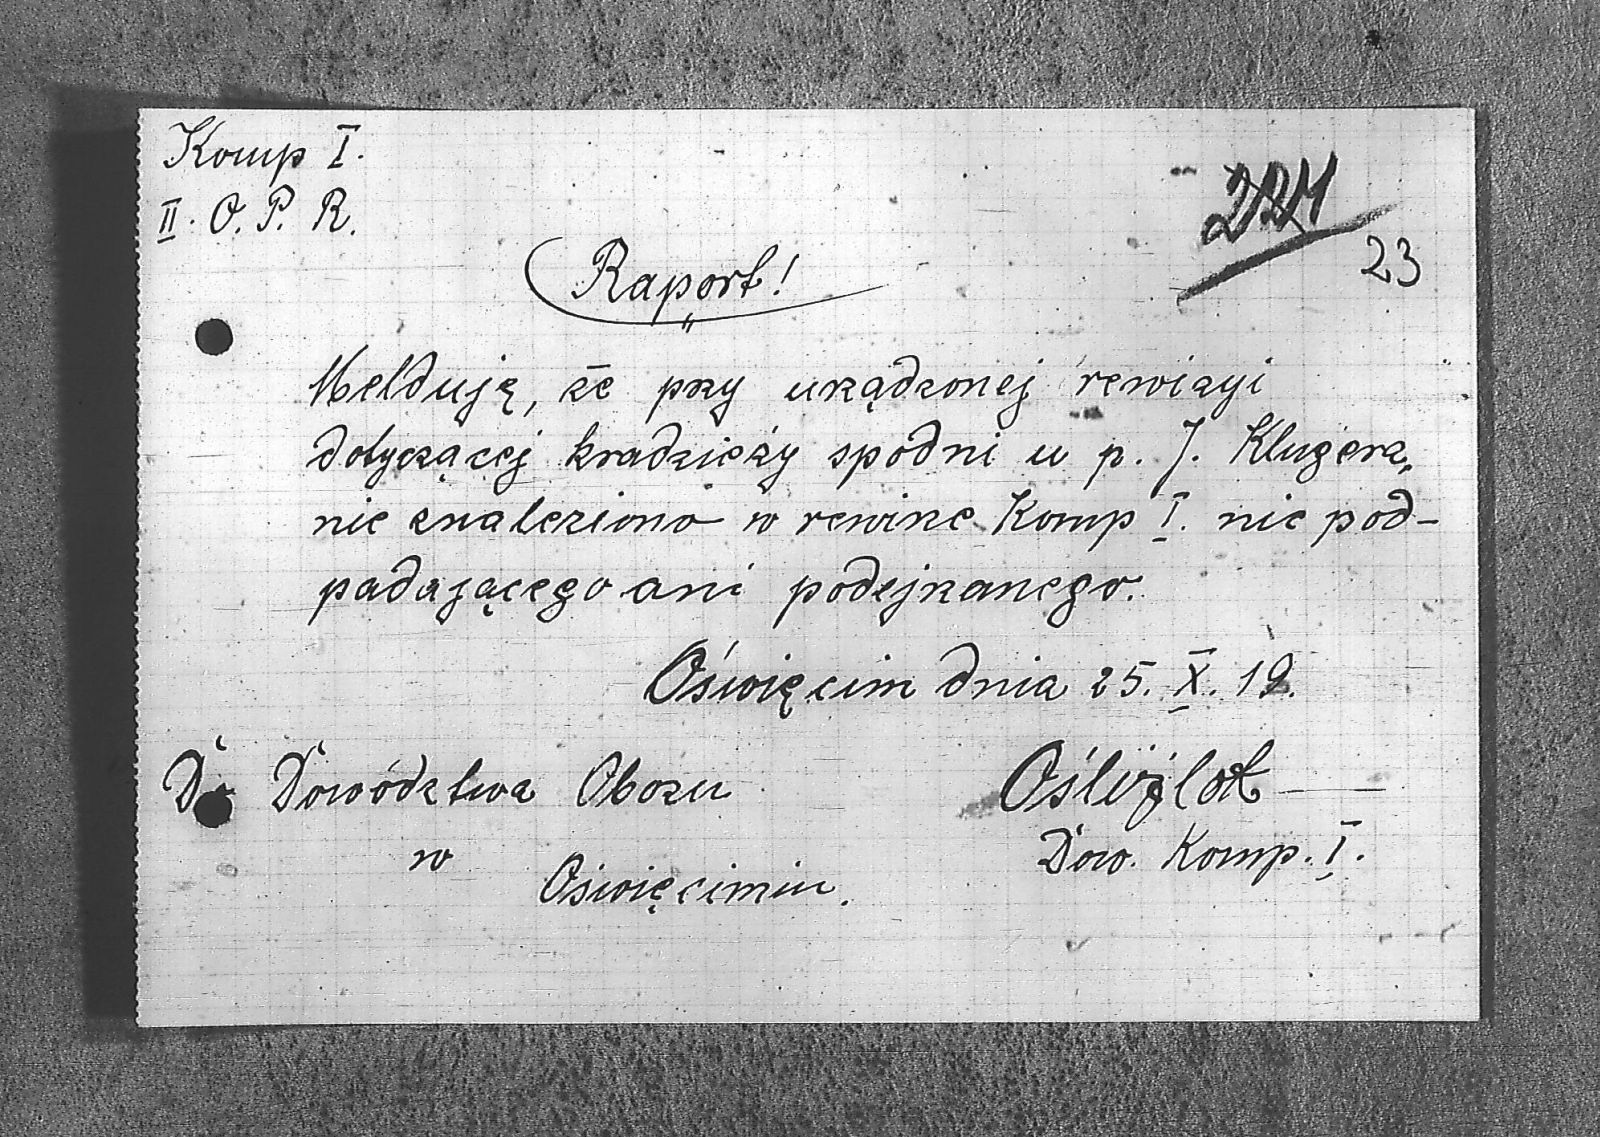 Komp I.
II. O. P. R.
23
Raport!
Melduję, że przy urządzonej rewizyi
dotyczącej kradzieży spodni u p. J. Klugera,
nic znaleziono w Komp I. nic pod-
padającego ani podejrzanego.
Oświęcim dnia 25. X. 19.
Do Dowództwa Obozu
w
Oświęcimiu.
Oślizlok
Dow. Komp. I.